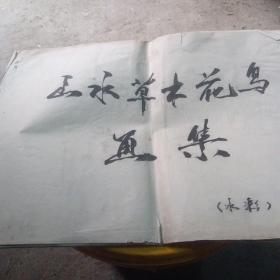 山水草木花鸟
画集
（水彩）